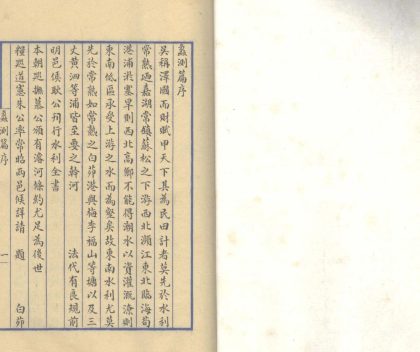 蠡測篇序
吳稱澤國而財賦甲天下其為民田計者莫先於水利
常熟迤嘉湖常鎮蘇松之下游西北瀕江東北臨海苟
港浦淤塞旱則西北高鄉不能得潮水以資灌溉潦則
東南低區承受上游之水而為壑矣故東南水利尤莫
先於常熟如常熟之白茆港與梅李福山等塘以及三
丈黃泗等浦皆至要之幹河 法代有良規前
明邑侯耿公刊行水利全書
本朝巡撫慕公頒有濬河條約尤足為後世
糧巡道憲朱公率常臨兩邑候詳請 題 白茆
蠡測篇序 一